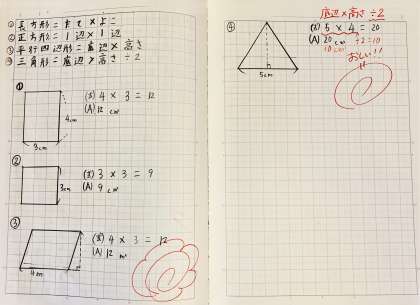 ①長方形＝たて×よこ
②正方形＝1辺×1辺
③平行四辺形＝底辺×高さ
④三角形＝底辺×高さ÷2
①
(式) 4 × 3 = 12
(A) 12 cm²
4cm
3cm
②
(式) 3 × 3 = 9
(A) 9 cm²
3cm
③
(式) 4 × 3 = 12
(A) 12
4cm
④
底辺×高さ÷2
(式) 5 × 4 = 20
(A) 20 cm² ÷2=10
10cm²
おしい!!
5cm